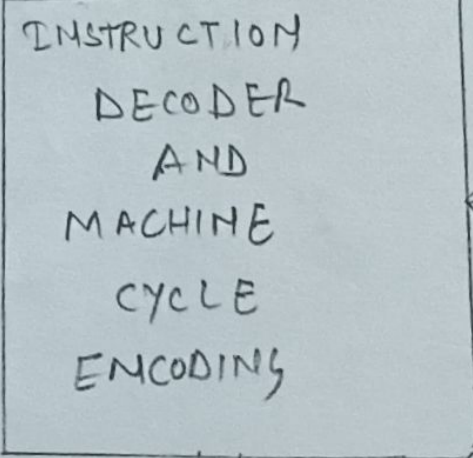 INSTRUCTION
DECODER
AND
MACHINE
CYCLE
ENCODING